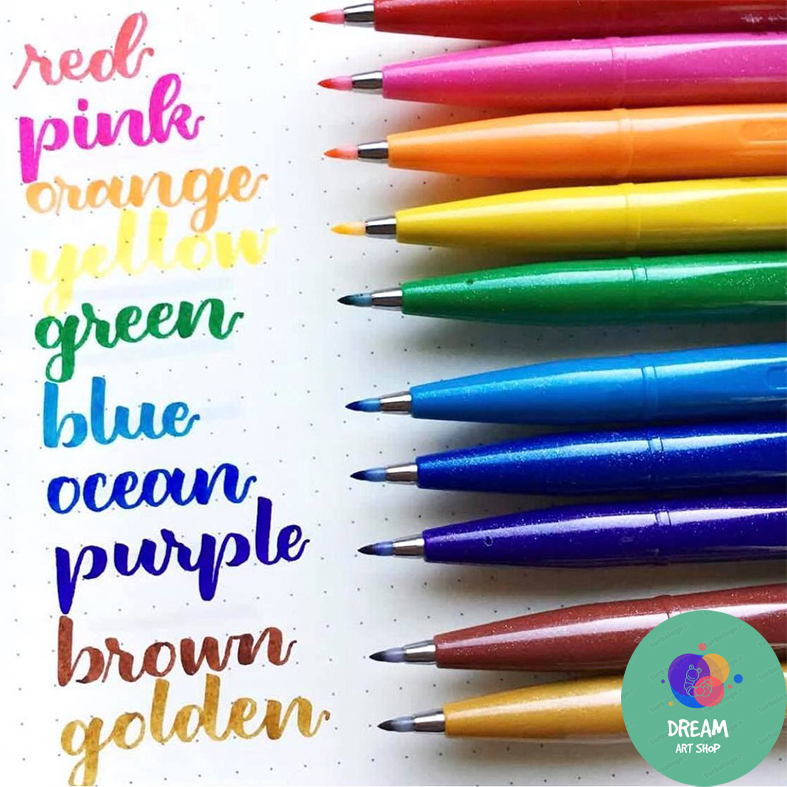 red
pink
orange
yellow
green
blue
ocean
purple
brown
golden
DREAM
ART SHOP